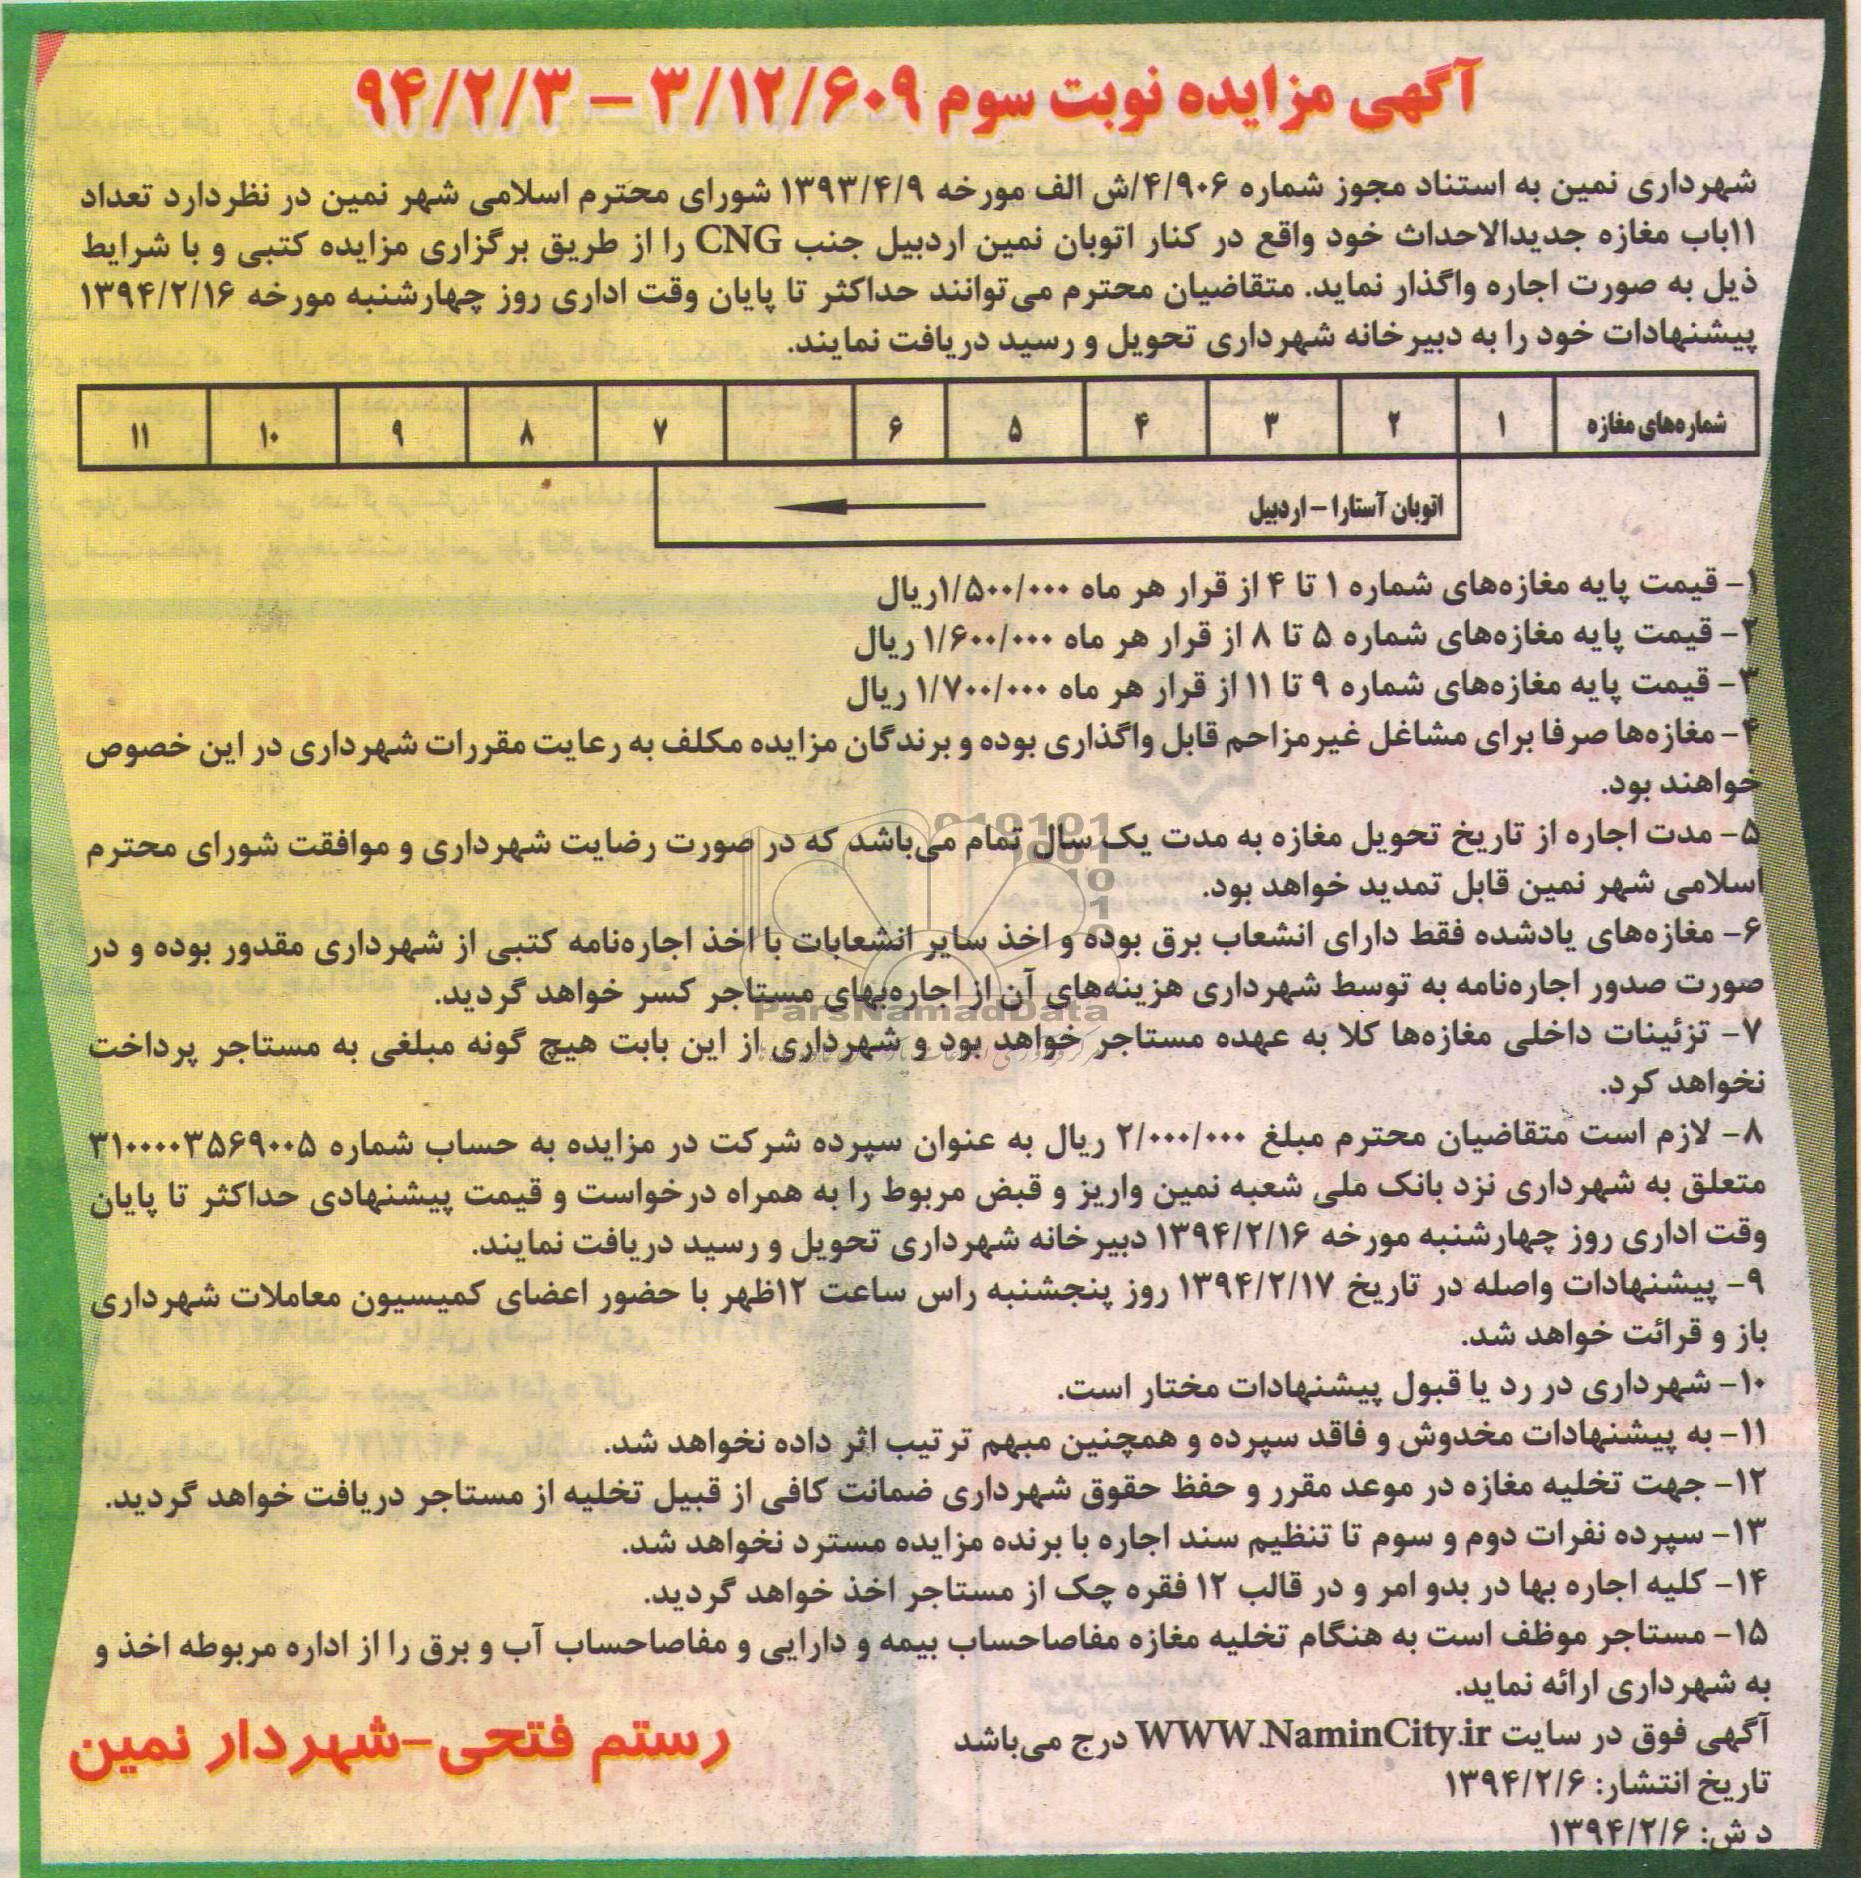 آگهی مزایده نوبت سوم ۳/۱۲/۶۰۹ – ۹۴/۲/۳
شهرداری نمین به استناد مجوز شماره ۴/۹۰۶/ش الف مورخه ۱۳۹۳/۴/۹ شورای محترم اسلامی شهر نمین در نظردارد تعداد
۱۱باب مغازه جدیدالاحداث خود واقع در کنار اتوبان نمین اردبیل جنب CNG را از طریق برگزاری مزایده کتبی و با شرایط
ذیل به صورت اجاره واگذار نماید. متقاضیان محترم می‌توانند حداکثر تا پایان وقت اداری روز چهارشنبه مورخه ۱۳۹۴/۲/۱۶
پیشنهادات خود را به دبیرخانه شهرداری تحویل و رسید دریافت نمایند.
شماره‌های مغازه ۱ ۲ ۳ ۴ ۵ ۶ ۷ ۸ ۹ ۱۰ ۱۱
اتوبان آستارا – اردبیل
۱- قیمت پایه مغازه‌های شماره ۱ تا ۴ از قرار هر ماه ۱/۵۰۰/۰۰۰ریال
۲- قیمت پایه مغازه‌های شماره ۵ تا ۸ از قرار هر ماه ۱/۶۰۰/۰۰۰ ریال
۳- قیمت پایه مغازه‌های شماره ۹ تا ۱۱ از قرار هر ماه ۱/۷۰۰/۰۰۰ ریال
۴- مغازه‌ها صرفا برای مشاغل غیرمزاحم قابل واگذاری بوده و برندگان مزایده مکلف به رعایت مقررات شهرداری در این خصوص
خواهند بود.
۵- مدت اجاره از تاریخ تحویل مغازه به مدت یک سال تمام می‌باشد که در صورت رضایت شهرداری و موافقت شورای محترم
اسلامی شهر نمین قابل تمدید خواهد بود.
۶- مغازه‌های یادشده فقط دارای انشعاب برق بوده و اخذ سایر انشعابات با اخذ اجاره‌نامه کتبی از شهرداری مقدور بوده و در
صورت صدور اجاره‌نامه به توسط شهرداری هزینه‌های آن از اجاره‌بهای مستاجر کسر خواهد گردید.
ParsNamadData
۷- تزئینات داخلی مغازه‌ها کلا به عهده مستاجر خواهد بود و شهرداری از این بابت هیچ گونه مبلغی به مستاجر پرداخت
نخواهد کرد.
۸- لازم است متقاضیان محترم مبلغ ۲/۰۰۰/۰۰۰ ریال به عنوان سپرده شرکت در مزایده به حساب شماره ۳۱۰۰۰۰۳۵۶۹۰۰۵
متعلق به شهرداری نزد بانک ملی شعبه نمین واریز و قبض مربوط را به همراه درخواست و قیمت پیشنهادی حداکثر تا پایان
وقت اداری روز چهارشنبه مورخه ۱۳۹۴/۲/۱۶ دبیرخانه شهرداری تحویل و رسید دریافت نمایند.
۹- پیشنهادات واصله در تاریخ ۱۳۹۴/۲/۱۷ روز پنجشنبه راس ساعت ۱۲ظهر با حضور اعضای کمیسیون معاملات شهرداری
باز و قرائت خواهد شد.
۱۰- شهرداری در رد یا قبول پیشنهادات مختار است.
۱۱- به پیشنهادات مخدوش و فاقد سپرده و همچنین مبهم ترتیب اثر داده نخواهد شد.
۱۲- جهت تخلیه مغازه در موعد مقرر و حفظ حقوق شهرداری ضمانت کافی از قبیل تخلیه از مستاجر دریافت خواهد گردید.
۱۳- سپرده نفرات دوم و سوم تا تنظیم سند اجاره با برنده مزایده مسترد نخواهد شد.
۱۴- کلیه اجاره بها در بدو امر و در قالب ۱۲ فقره چک از مستاجر اخذ خواهد گردید.
۱۵- مستاجر موظف است به هنگام تخلیه مغازه مفاصاحساب بیمه و دارایی و مفاصاحساب آب و برق را از اداره مربوطه اخذ و
به شهرداری ارائه نماید.
آگهی فوق در سایت WWW.NaminCity.ir درج می‌باشد
تاریخ انتشار: ۱۳۹۴/۲/۶
د ش: ۱۳۹۴/۲/۶
رستم فتحی-شهردار نمین